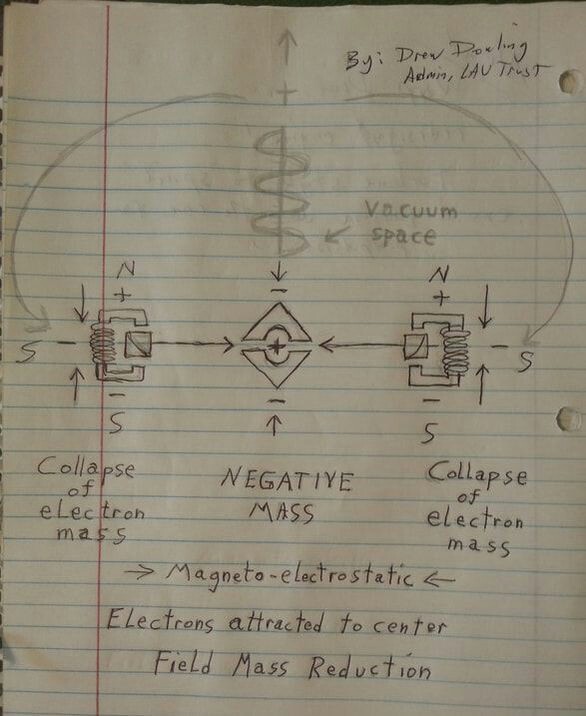 By: Drew Dowling
Admin, LAV Trust
+
Vacuum
space
N
+
-
N
+
S -
+
- S
-
S
-
-
S
Collapse
of
electron
mass
NEGATIVE
MASS
Collapse
of
electron
mass
→ Magneto-electrostatic ←
Electrons attracted to center
Field Mass Reduction